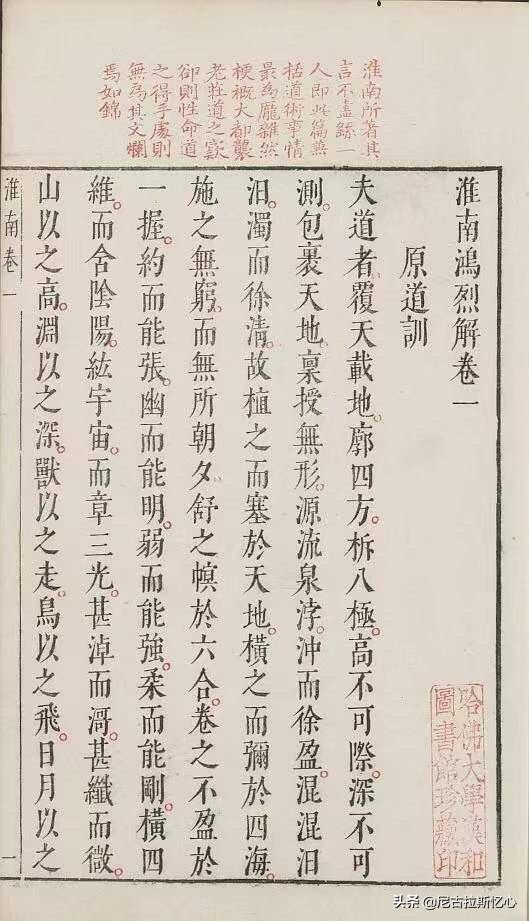 淮南所著其
言不盡繇一
人即此篇兼
括道術事情
最為龐雜然
梗概大都襲
老莊道之竅
卻則性命道
之得手處則
無為其文爛
焉如錦
淮南鴻烈解卷一
原道訓
夫道者覆天載地。廓四方。柝八極。高不可際。深不可
測。包裹天地。稟授無形。源流泉浡。沖而徐盈。混混汩
汩。濁而徐清。故植之而塞於天地。橫之而彌於四海。
施之無窮。而無所朝夕。舒之幎於六合。卷之不盈於
一握。約而能張。幽而能明。弱而能強。柔而能剛。橫四
維。而含陰陽。紘宇宙。而章三光。甚淖而滒。甚纖而微。
山以之高。淵以之深。獸以之走。鳥以之飛。日月以之
淮南卷一
一
哈佛大學漢和
圖書館珍藏印
头条 @尼古拉斯忆心